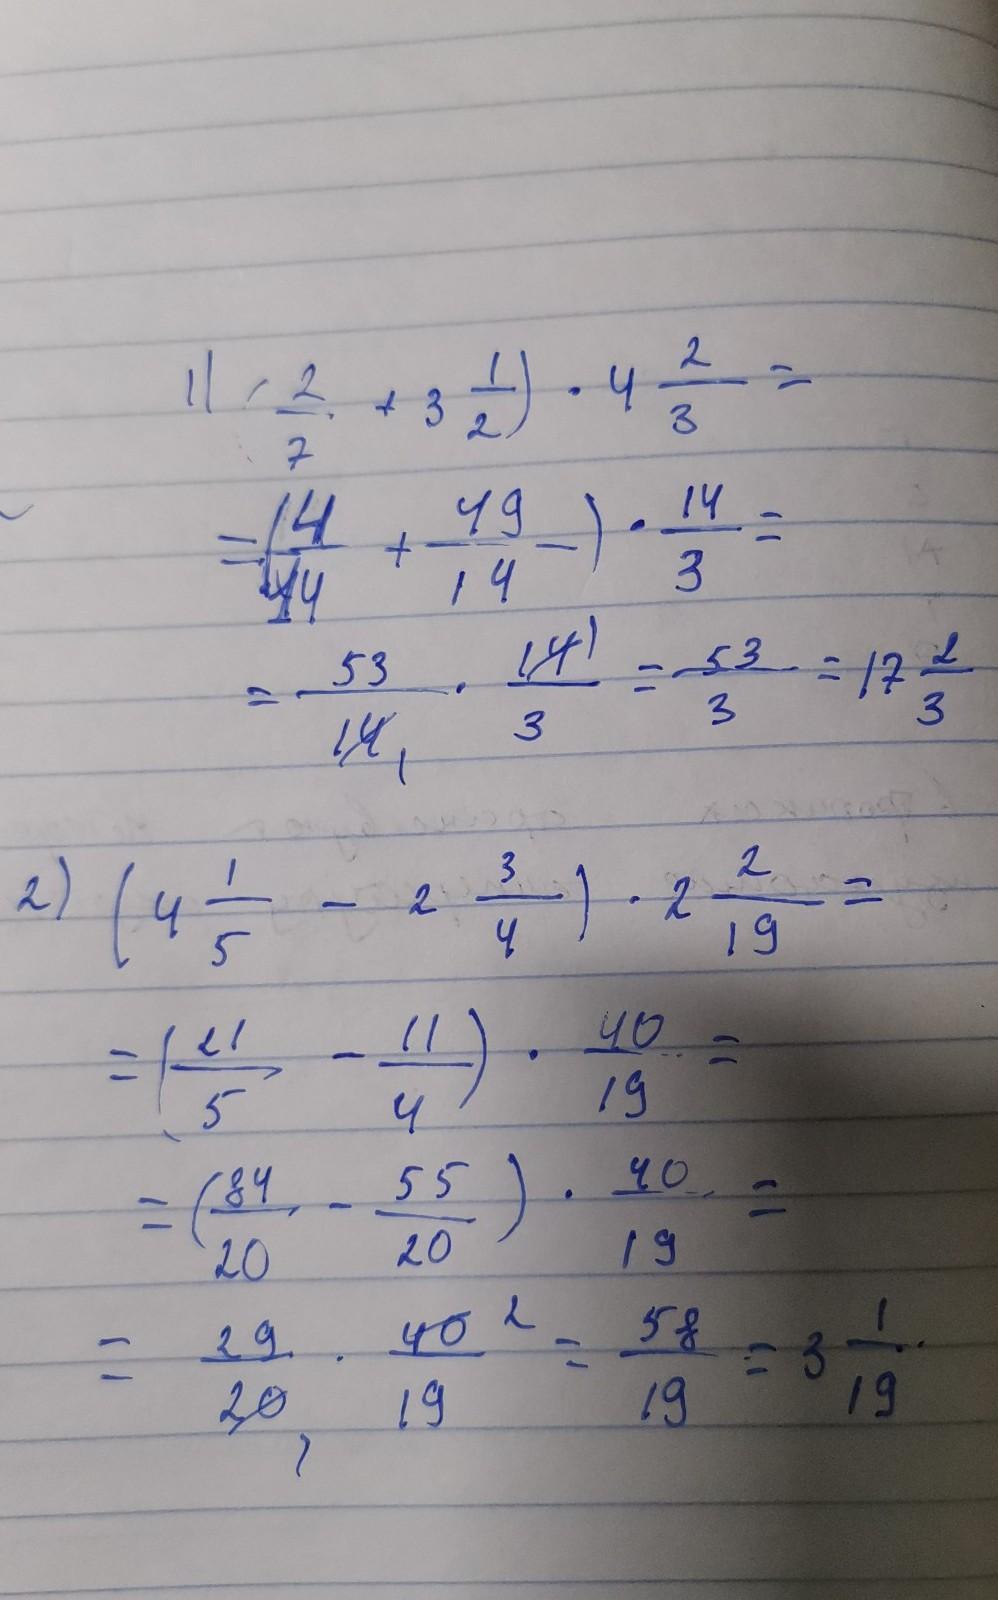 1) (2/7 + 3 1/2) · 4 2/3 =
= (4/14 + 49/14) · 14/3 =
= 53/14 1 · 14 1/3 = 53/3 = 17 2/3
2) (4 1/5 - 2 3/4) · 2 2/19 =
= (21/5 - 11/4) · 40/19 =
= (84/20 - 55/20) · 40/19 =
= 29/20 1 · 40 2/19 = 58/19 = 3 1/19